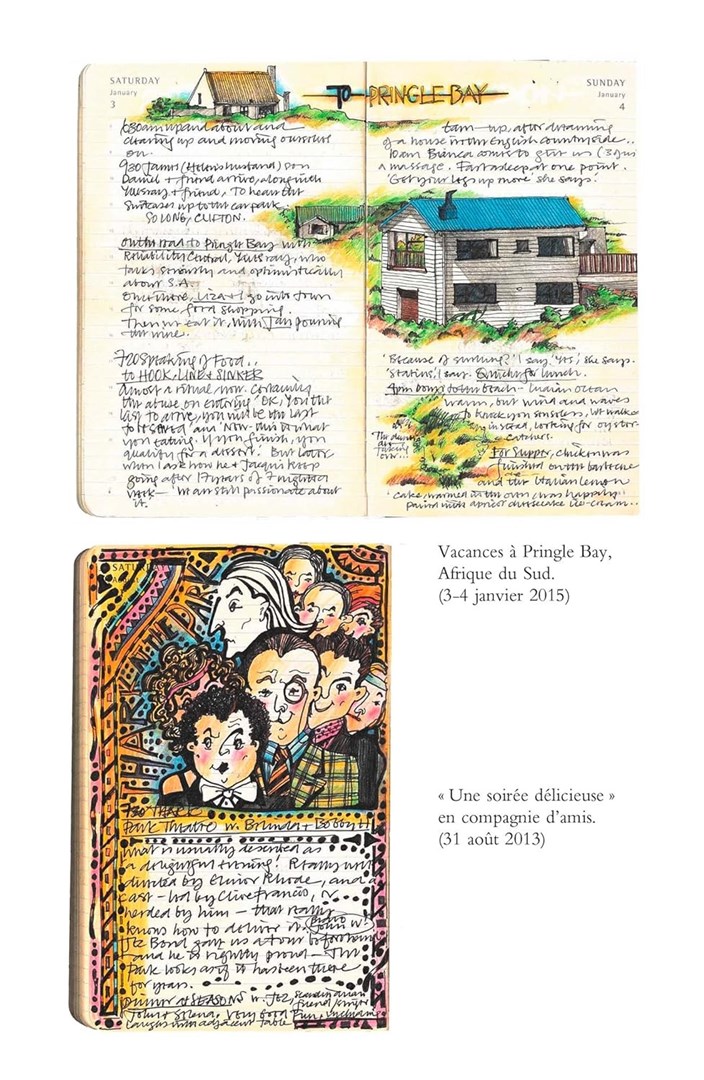 SATURDAY
January
3
TO PRINGLE BAY
SUNDAY
January
4
6.30am up and about and
clearing up and moving ourselves
on.
930 James (Helen's husband) son
Daniel + friend arrive, along with
+ friend, To heave the
Suitcases up to the car park.
SO LONG, CLIFTON.
on the road to Pringle Bay with
Reliability Central, who
talks seriously and optimistically
about S.A.
Once there, LIZA + I go into town
for some food shopping.
Then we eat it, with Jan pouring
the wine.
720 Speaking of Food..
to HOOK, LINE + SINKER
Almost a ritual now. Certainly
the abuse on entering 'OK, You the
last to arrive, you will be the last
to be served' and 'Now this is what
you eating. If you finish, you
qualify for a dessert.' But later
when I ask how he + Jacqui keep
going after 17 years of 7 nights a
week — 'We are still passionate about
it.'
up, after dreaming
of a house in the English countryside..
10am Bianca comes to give us (3 of us)
a massage. Fast asleep at one point.
'Get your legs up more' she says.
'Because of surfing?' I say. 'Yes', she says.
'Statins', I say. Quiche for lunch.
4pm down to the beach — Indian Ocean
warm, but wind and waves
to knock you senseless, we walk
instead, looking for oyster
catchers.
The dunes
are
taking
over...
For Supper, chicken was
finished on the barbecue
and the Italian lemon
cake, warmed in the oven (was happily
paired with apricot cheesecake ice-cream..
Vacances à Pringle Bay,
Afrique du Sud.
(3-4 janvier 2015)
SATURDAY
730
PARK Theatre w. Brenda + Bobby
What is usually described as
a delightful evening! Really well
directed by Elinor Rhode, and
cast — led by Clive Francis,
herded by him — that really
knows how to deliver it. Bravo
John W!
Jez Bond gave us a tour beforehand
and he is rightly proud — The
Park looks as if it has been there
for years.
Dinner at SEASONS w. JEZ, Scandinavian
friend
John + Selena, very good fun, including
laughs with adjacent table
« Une soirée délicieuse »
en compagnie d'amis.
(31 août 2013)